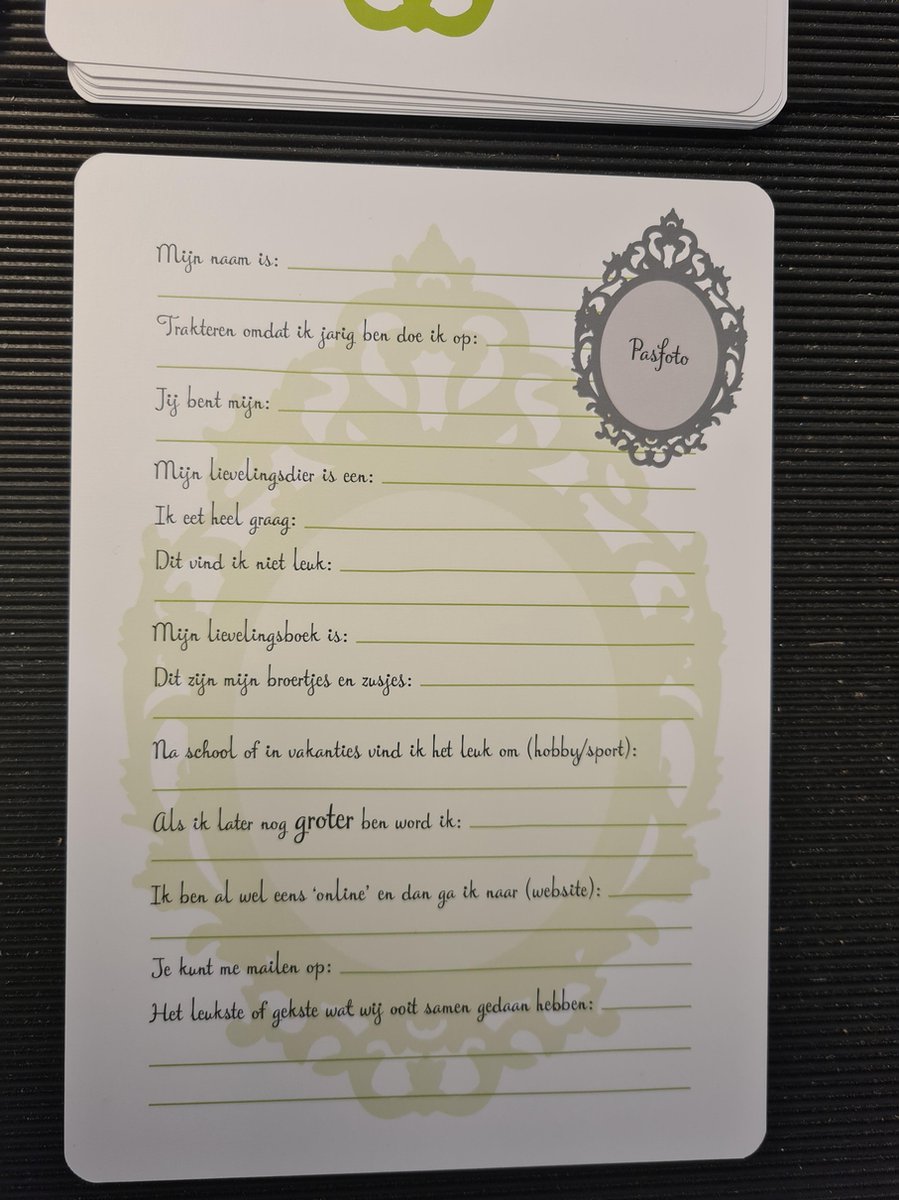 Mijn naam is:
Trakteren omdat ik jarig ben doe ik op:
Pasfoto
Jij bent mijn:
Mijn lievelingsdier is een:
Ik eet heel graag:
Dit vind ik niet leuk:
Mijn lievelingsboek is:
Dit zijn mijn broertjes en zusjes:
Na school of in vakanties vind ik het leuk om (hobby/sport):
Als ik later nog groter ben word ik:
Ik ben al wel eens ‘online’ en dan ga ik naar (website):
Je kunt me mailen op:
Het leukste of gekste wat wij ooit samen gedaan hebben: